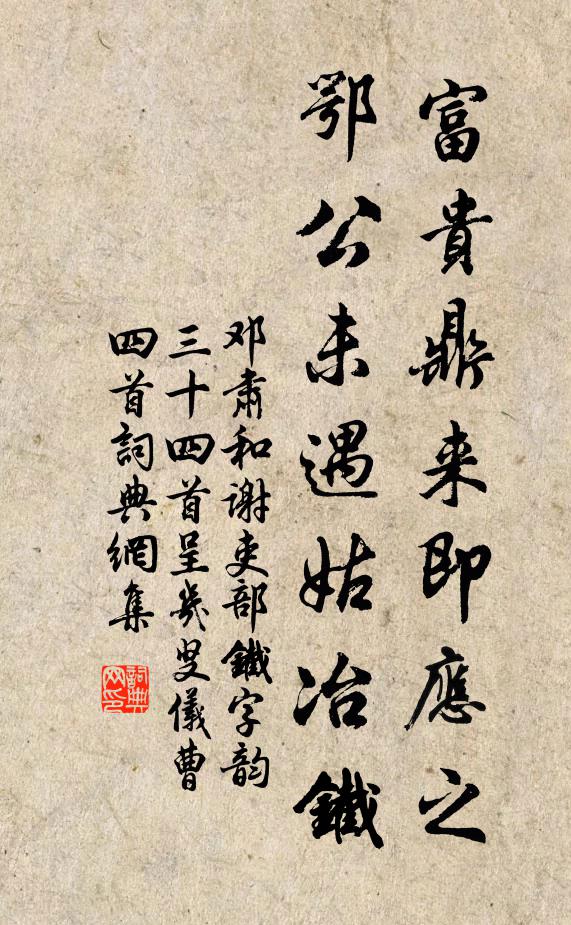 富貴鼎来即應之
鄂公未遇姑冶鐵
邓肅和谢吏部鐵字韵
三十四首呈幾叟儀曹
四首詞典網集
詞典
网印